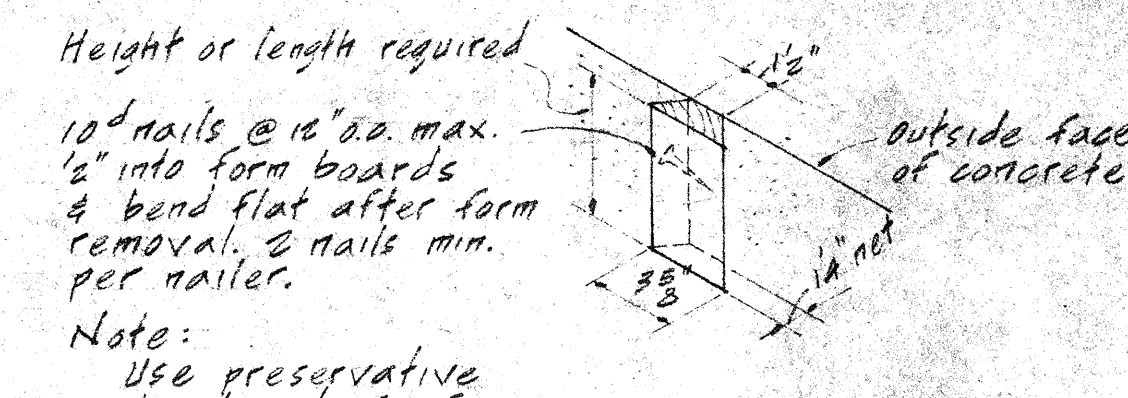 Height or length required
10d nails @ 12" o.c. max.
1/2" into form boards
& bend flat after form
removal. 2 nails min.
per nailer.
Note:
Use preservative
1/2"
Outside face
of concrete
1/4" net
3 5/8"